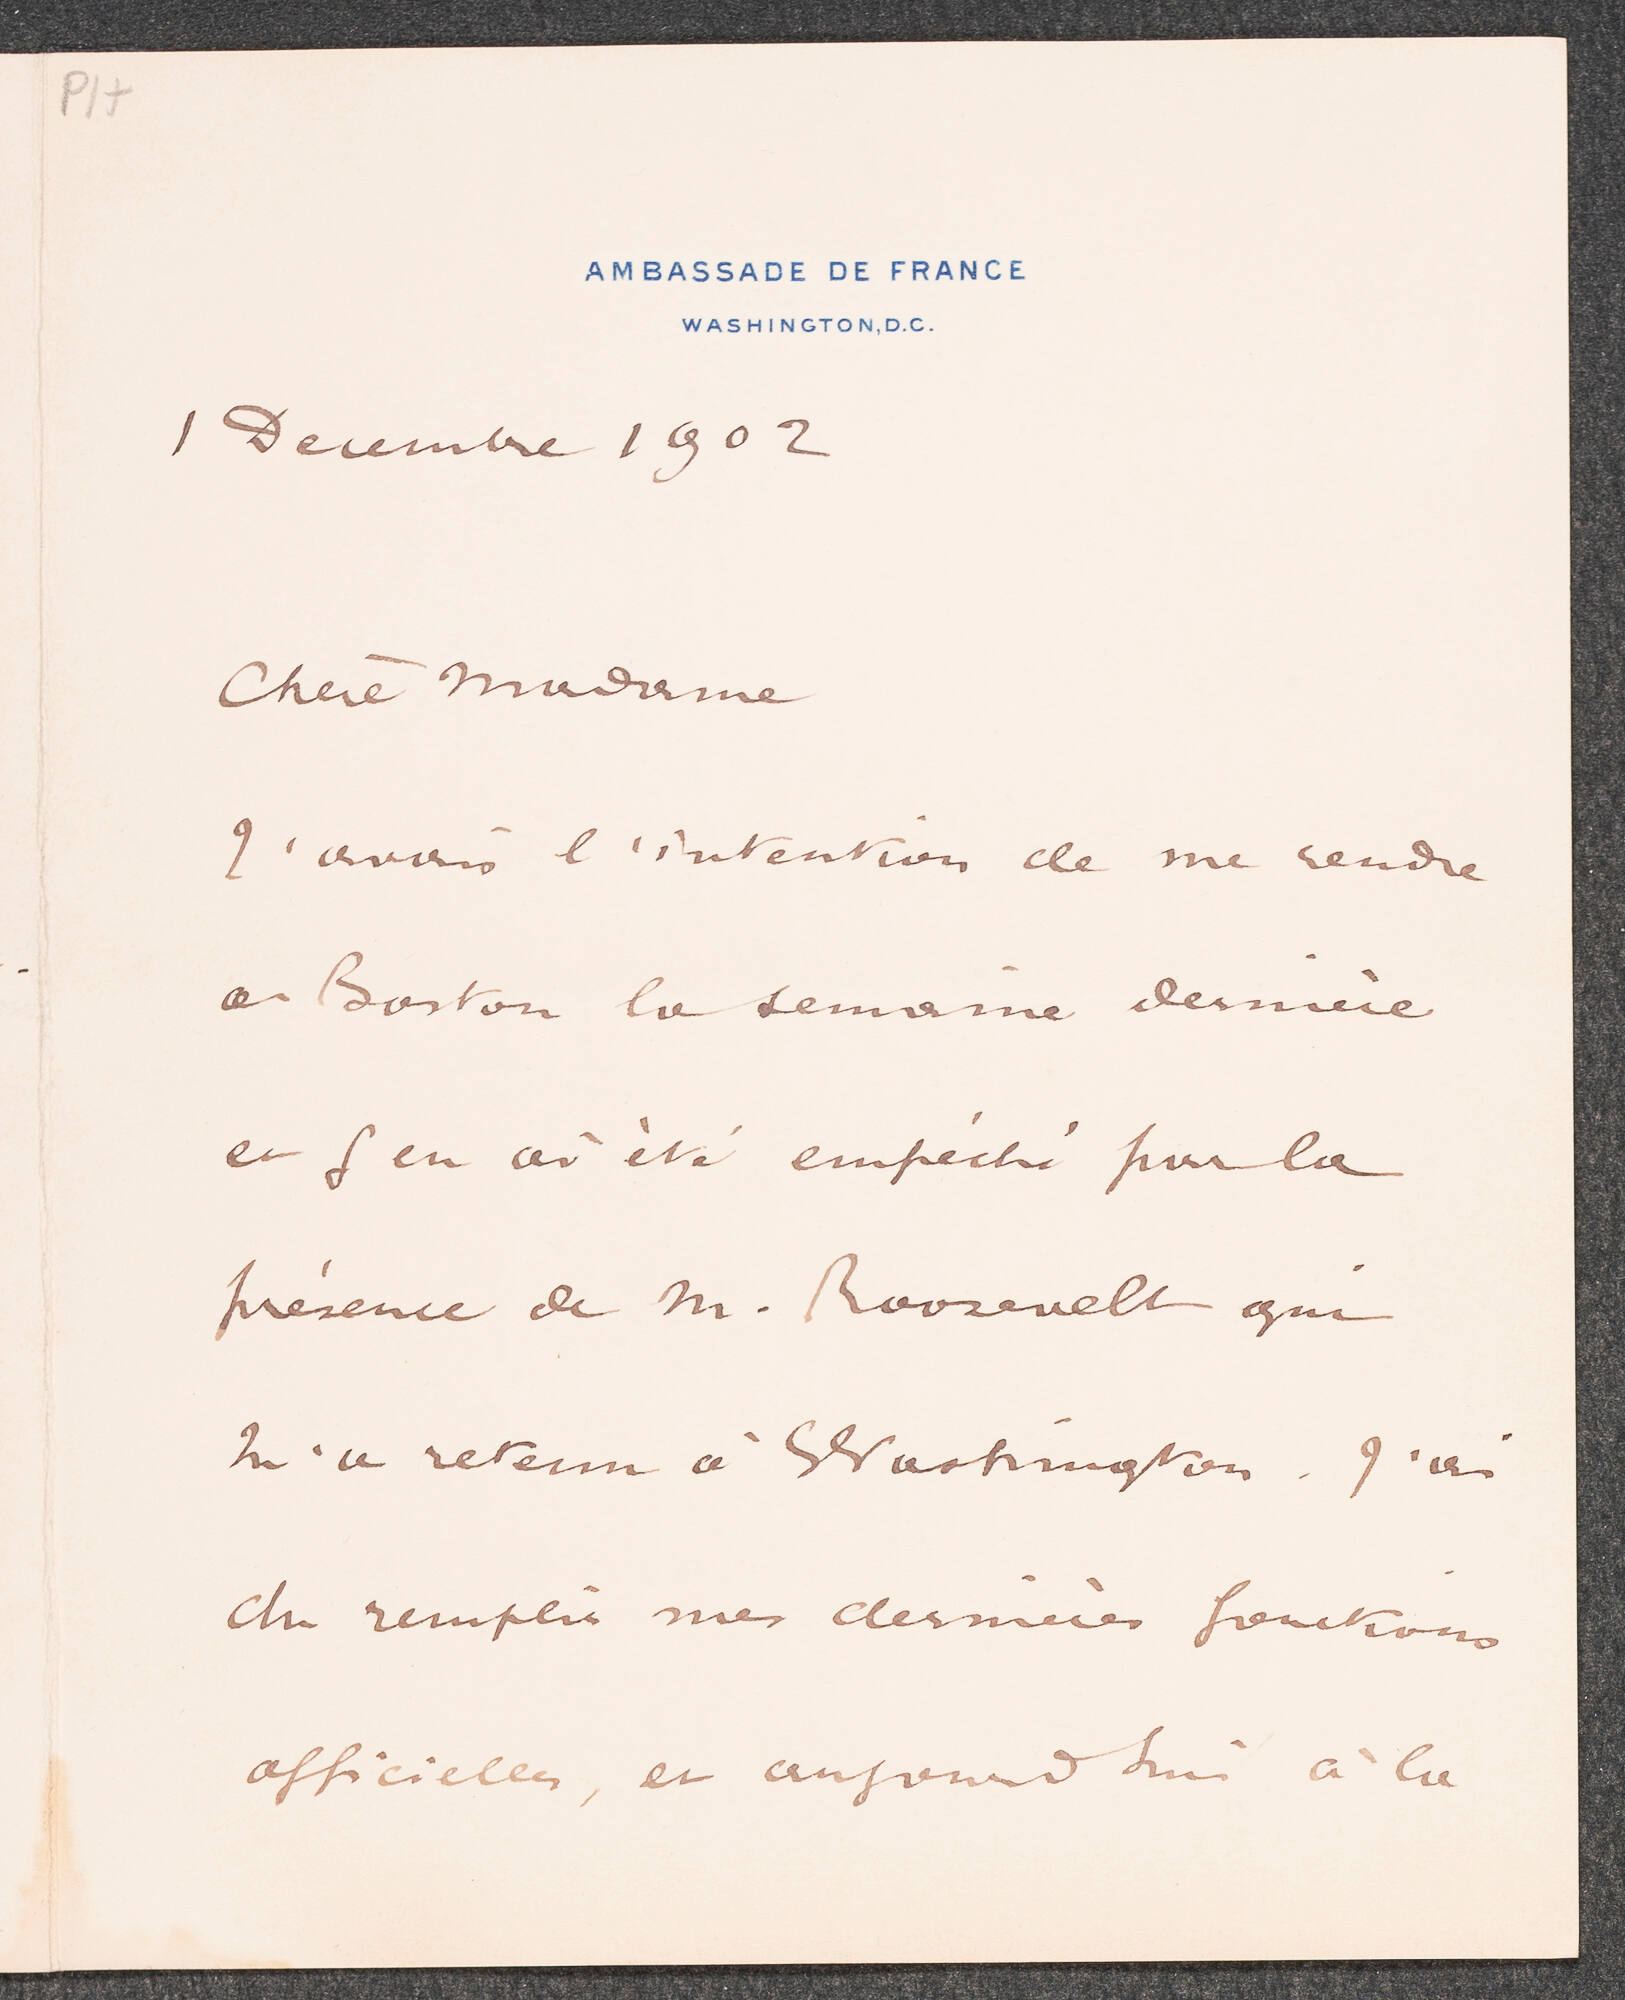 P/t
AMBASSADE DE FRANCE
WASHINGTON, D.C.
1 Decembre 1902
Chère Madame
J'avais l'intention de me rendre
a Boston la semaine dernière
et j'en ai été empéché par la
présence de M. Roosevelt qui
m'a retenu à Washington. J'ai
du remplir mes dernières fonctions
officielles, et aujourd'hui à la